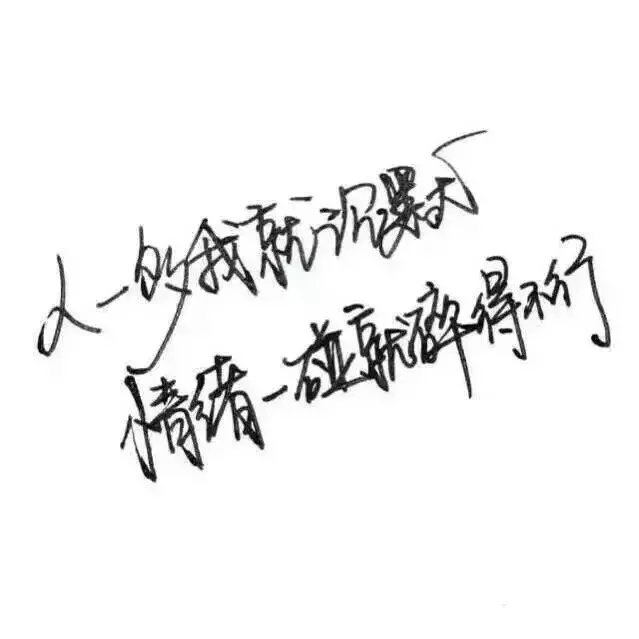 人一多我就沉默不
情绪一碰就碎得不行